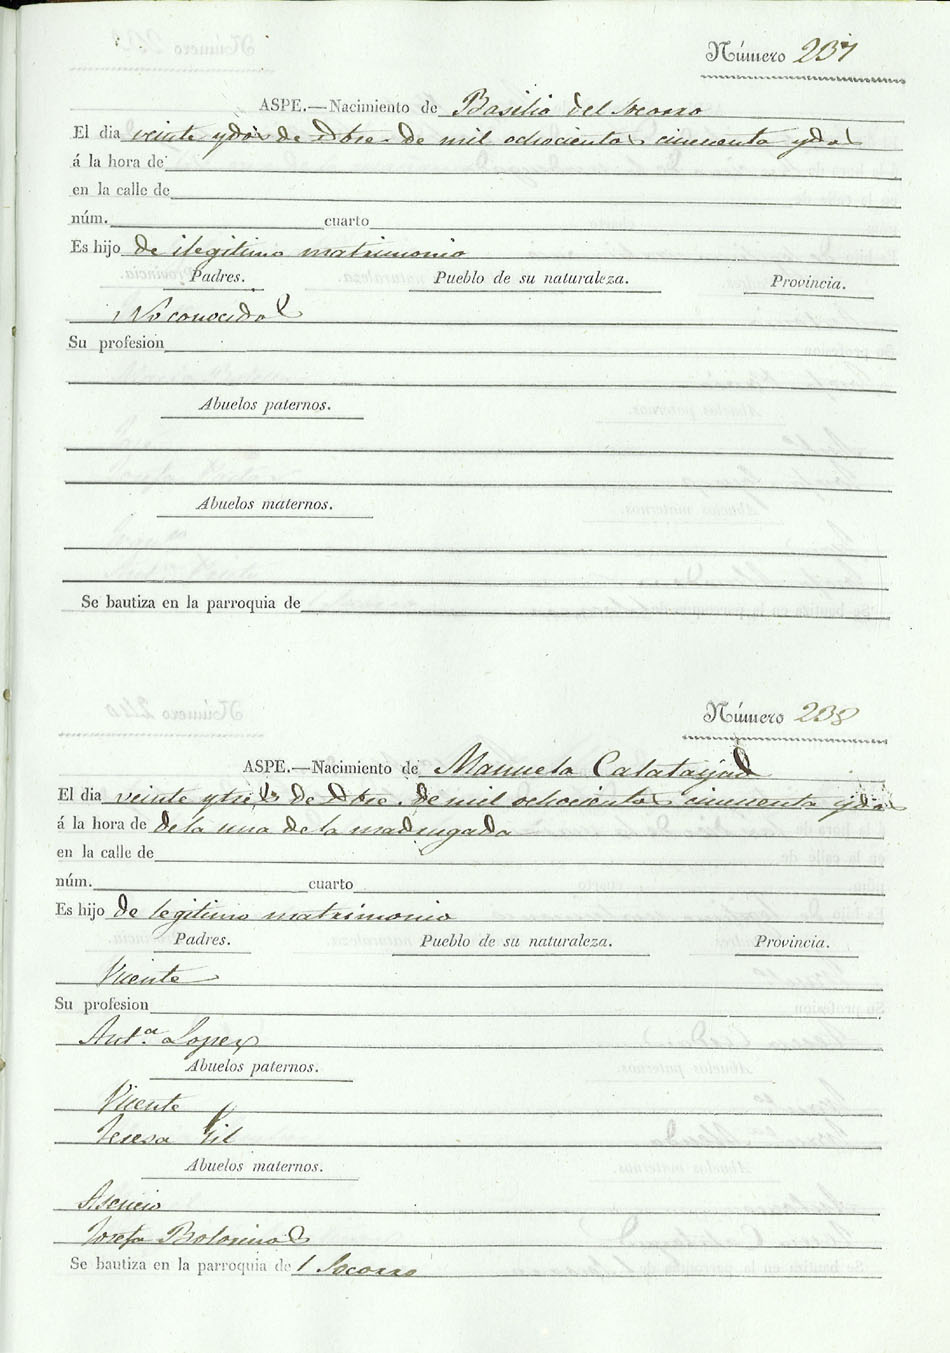 Número 237
ASPE.—Nacimiento de Basilia del Socorro
El dia veinte y dos de Dbre. de mil ochocientos cincuenta y dos
á la hora de
en la calle de
núm. cuarto
Es hijo de ilegitimo matrimonio
Padres. Pueblo de su naturaleza. Provincia.
No conocidos
Su profesion
Abuelos paternos.
Abuelos maternos.
Se bautiza en la parroquia de
Número 238
ASPE.—Nacimiento de Manuela Calatayud
El dia veinte y tres de Dbre. de mil ochocientos cincuenta y dos
á la hora de de la una de la madrugada
en la calle de
núm. cuarto
Es hijo de legitimo matrimonio
Padres. Pueblo de su naturaleza. Provincia.
Vicente
Su profesion
Ant.ª Lopez
Abuelos paternos.
Vicente
Teresa Gil
Abuelos maternos.
Asencio
Josefa Botonias
Se bautiza en la parroquia de l Socorro